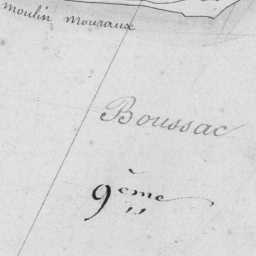 moulin mouraux
Boussac
9ème